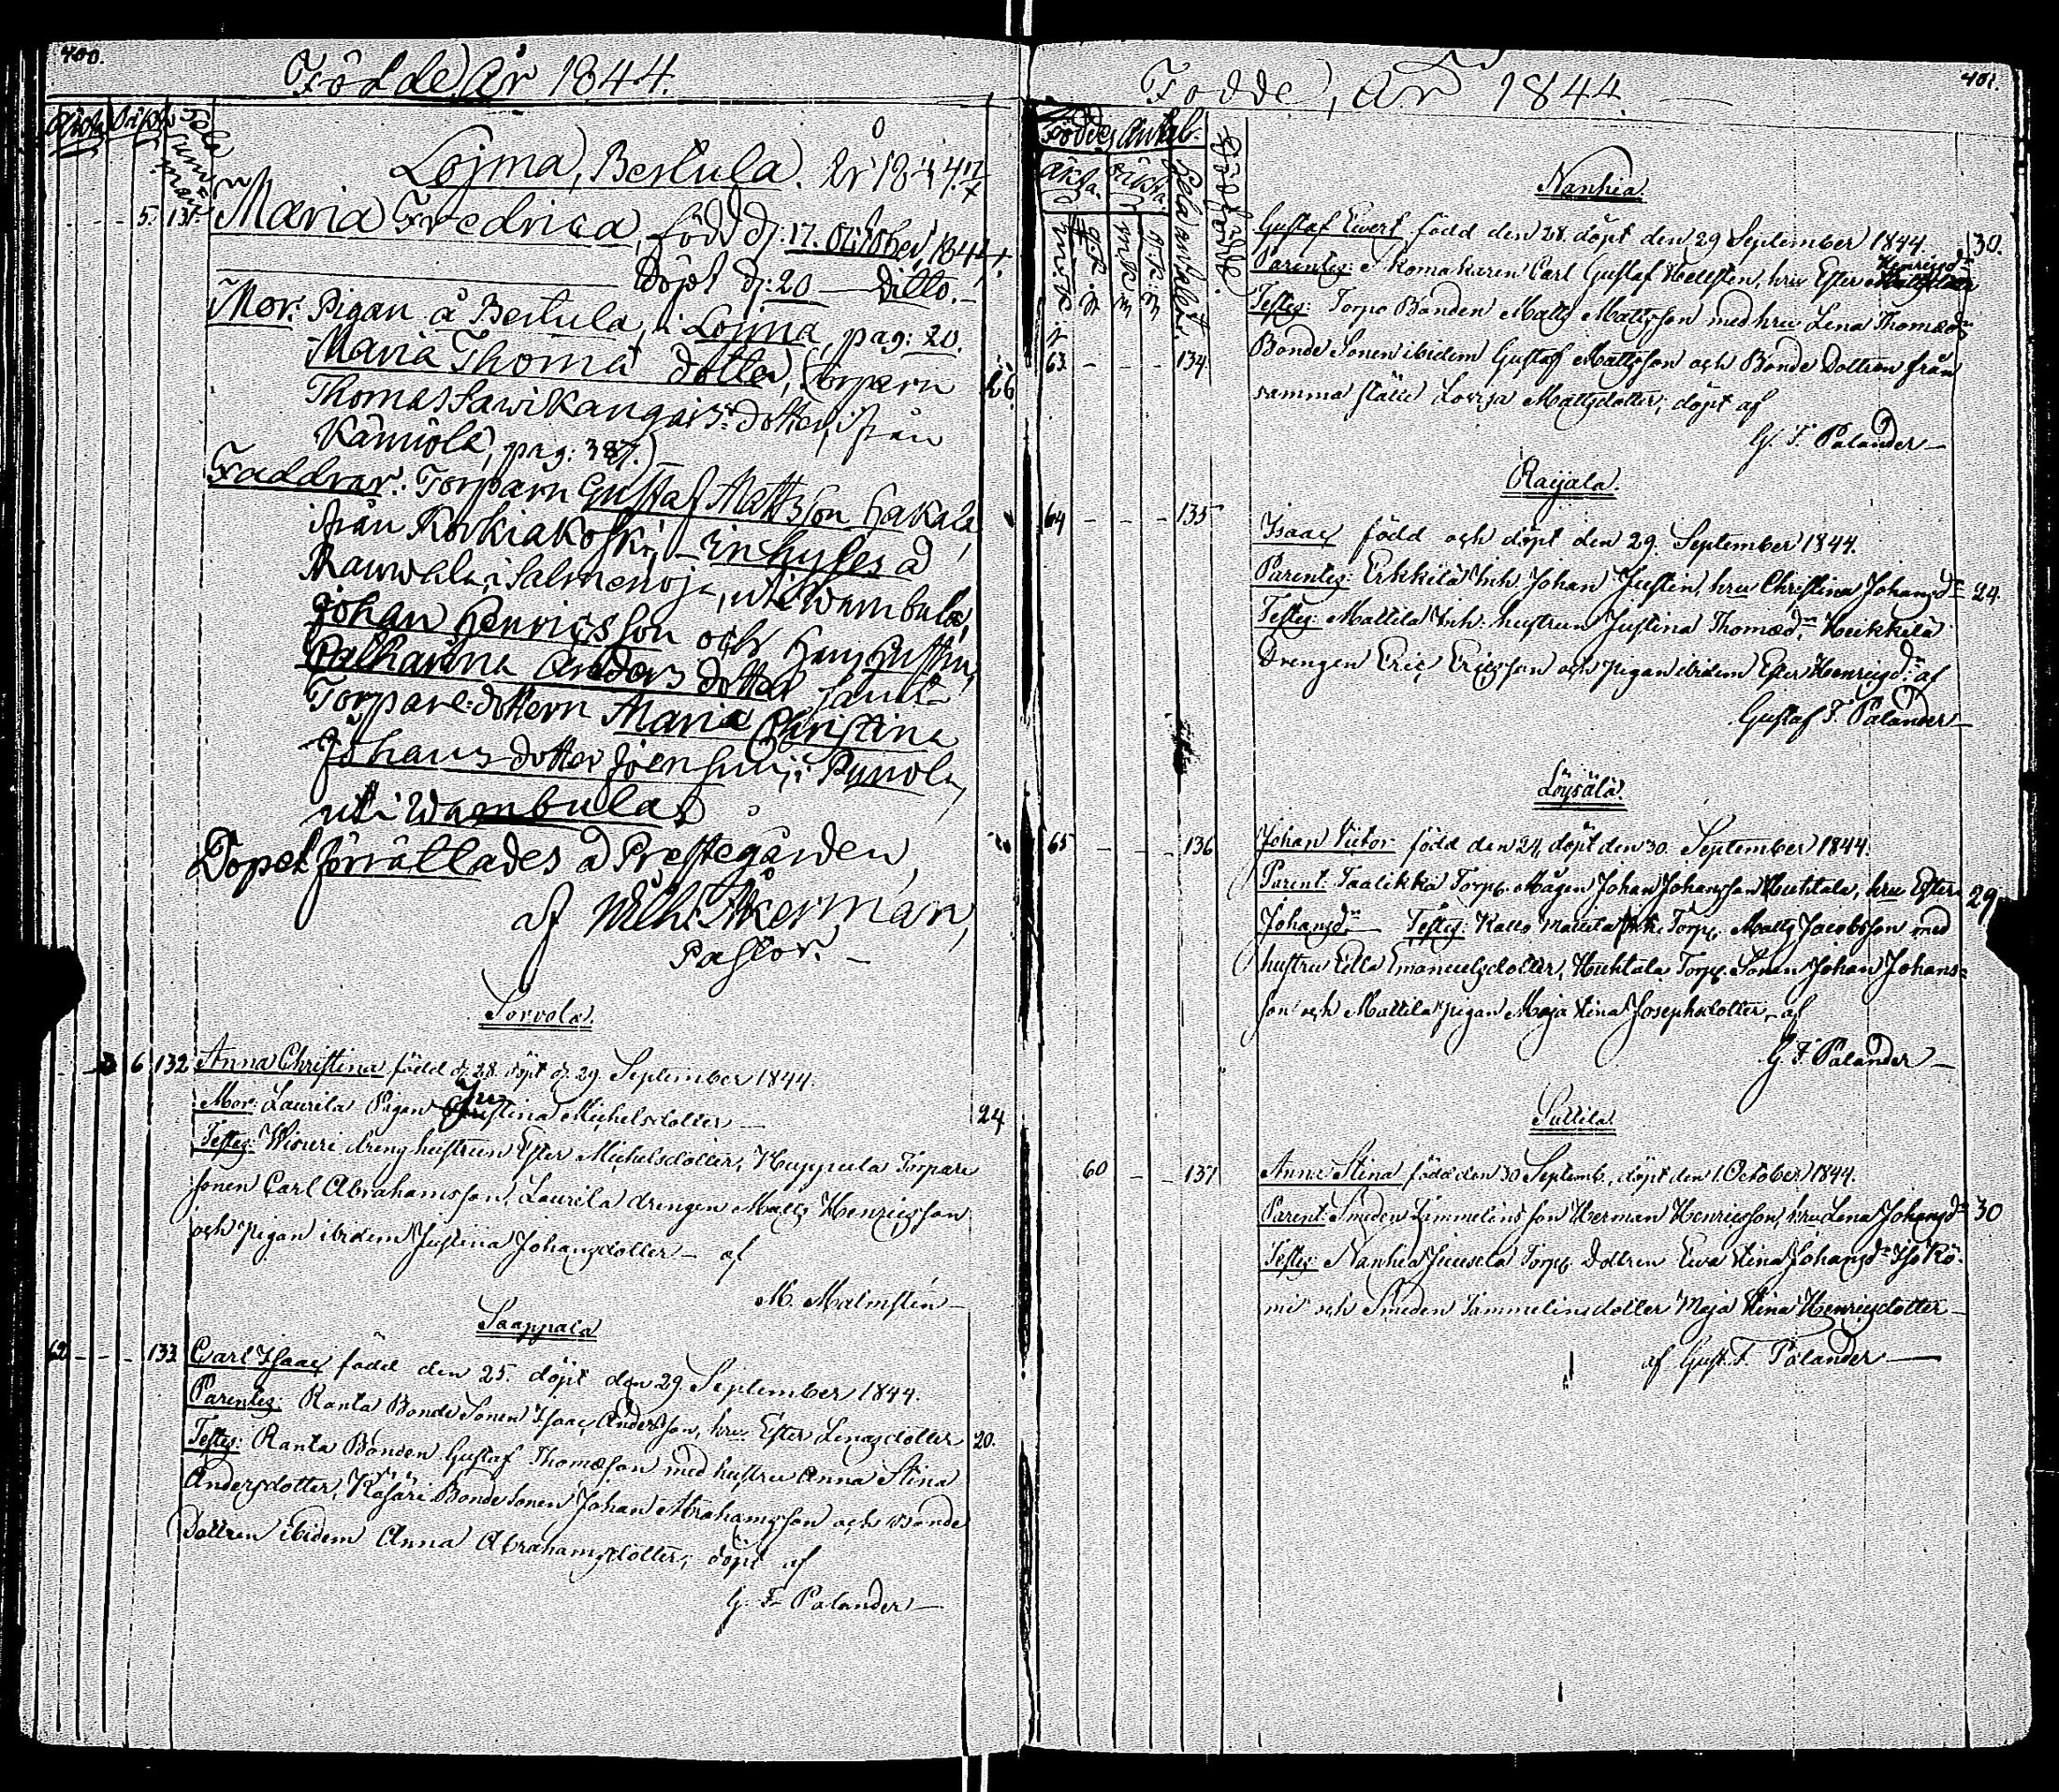 400.
Födde, år 1844.
Lojma, Bertula. år 1844.
5. 131. Maria Fredrica, född d: 17. October, 1844.
Döpt d: 20 — Ditto.—
Mor: Pigan å Bertula, i Lojma, pag: 20.
Maria Thomæ dotter, (Torparn 26.
Thomas dotter, från
pag: 387.)
Faddrar: Torparn Gustaf Mattsson Hakala,
ifrån Korkiakoski, — Inhyses å
i Salmenoja, uti Wambula,
Johan Henricsson och Hans Hustru,
Catharina Anders dotter samt
Torpare-dottern Maria Christina
Johans dotter Joensuu, i Punola,
uti Wambula.
Dopet förrättades å Prestegården,
af Wilh: Åkerman,
Pastor. —
Sorvola.
6 132 Anna Christina född d. 28. döpt d. 29. September 1844.
Mor: Laurila Pigan Justina Michelsdotter — 24
Testes: Wiouri dreng hustrun Ester Michelsdotter, Huppula Torpare
sonen Carl Abrahamsson, Laurila drengen Matts Henricsson
och pigan ibidem Justina Johansdotter — af
M. Malmstén
Saappala
62 - - - 133 Carl Isaac född den 25. döpt den 29. September 1844.
Parentes: Ranta Bonde Sonen Isaac Andersson, hru Ester Linasdotter 20.
Testes: Ranta Bonden Gustaf Thomasson med hustru Anna Stina
Andersdotter, Käsäri Bonde Sonen Johan Abrahamsson och Bonde
Dottren ibidem Anna Abrahamsdotter; döpt af
G. F. Palander —
401.
Födde, år 1844
Födde, Antal.
äkta. oäkta.
Hela antalet.
Dödfödde.
Nanhia.
Gustaf Evert född den 28. döpt den 29 September 1844. 30.
Parentes: Skomakaren Carl Gustaf Hellsten, hru Ester Henricsdr
Testes: Torpo Bonden Matts Mattsson med hru Lena Thomædr
63 - - - 134 Bonde Sonen ibidem Gustaf Mattsson och Bonde Dottren från
samma ställe Lovisa Mattsdotter; döpt af
G. F. Palander —
Raijala.
64 - - - 135 Isaac född och döpt den 29. September 1844.
Parentes: Erkkilä Inh. Johan Justin, hru Christina Johansdr 24.
Testes: Mattila Inh. hustrun Justina Thomædr, Heikkilä
Drengen Eric Ericsson och pigan ibidem Ester Henricsdr af
Gustaf F. Palander —
Löysälä.
65 - - - 136 Johan Victor född den 24, döpt den 30. September 1844.
Parent: Taalikka Torp. Mågen Johan Johansson Huhtala, hru Ester 29
Johansdr — Testes: Kallo Mattila Torp. Matts Jacobsson med
hustru Ulla Emanuelsdotter, Huhtala Torp. Sonen Johan Johans-
son och Mattila pigan Maja Stina Josephsdotter, af
G. F. Palander —
Suttila.
60 - - 137 Anna Stina född den 30 Septemb., döpt den 1. October 1844.
Parent: Smeden Tammelins son Herman Henricsson, hru Lena Johansdr 30
Testes: Nanhia Juusela Torp. Dottren Eva Stina Johansdr Iso Kö-
mi och Smeden Tammelins dotter Maja Stina Henricsdotter —
af Gust. F. Palander —